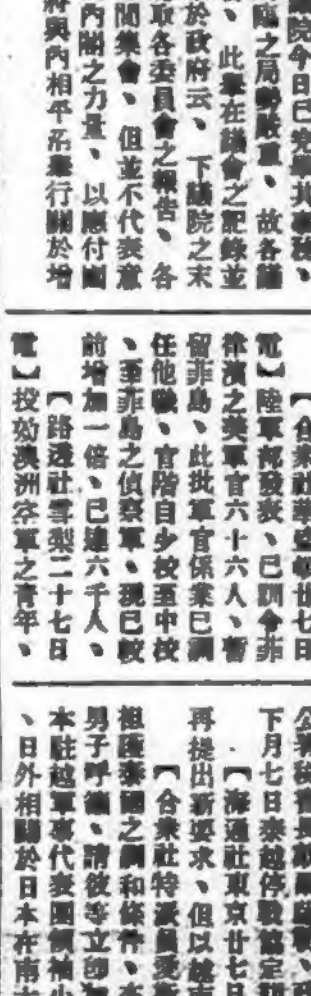 院今日已完畢其
之局勢嚴重、故各議
、此舉在議會之記錄並
於政府云、下議院之末
取各委員會之報告、各
開集會、但並不代表意
內閣之力量、以應付
將與內相平沼舉行關於增
【合衆社華盛頓廿七日
電】陸軍部發表、已訓令菲
律濱之美軍官六十六人、暫
留菲島、此批軍官係業已調
任他職、官階自少校至中校
、至菲島之偵察軍、現已較
前增加一倍、已達六千人、
【路透社雪梨二十七日
電】投効澳洲空軍之青年、
下月七日泰越停戰協定
【海通社東京廿七日
再提出新要求、但以越
【合衆社特派員愛
袒護泰國之調和條件、
男子呼籲、請彼等立卽
本駐越軍事代表團領袖
、日外相關於日本在南